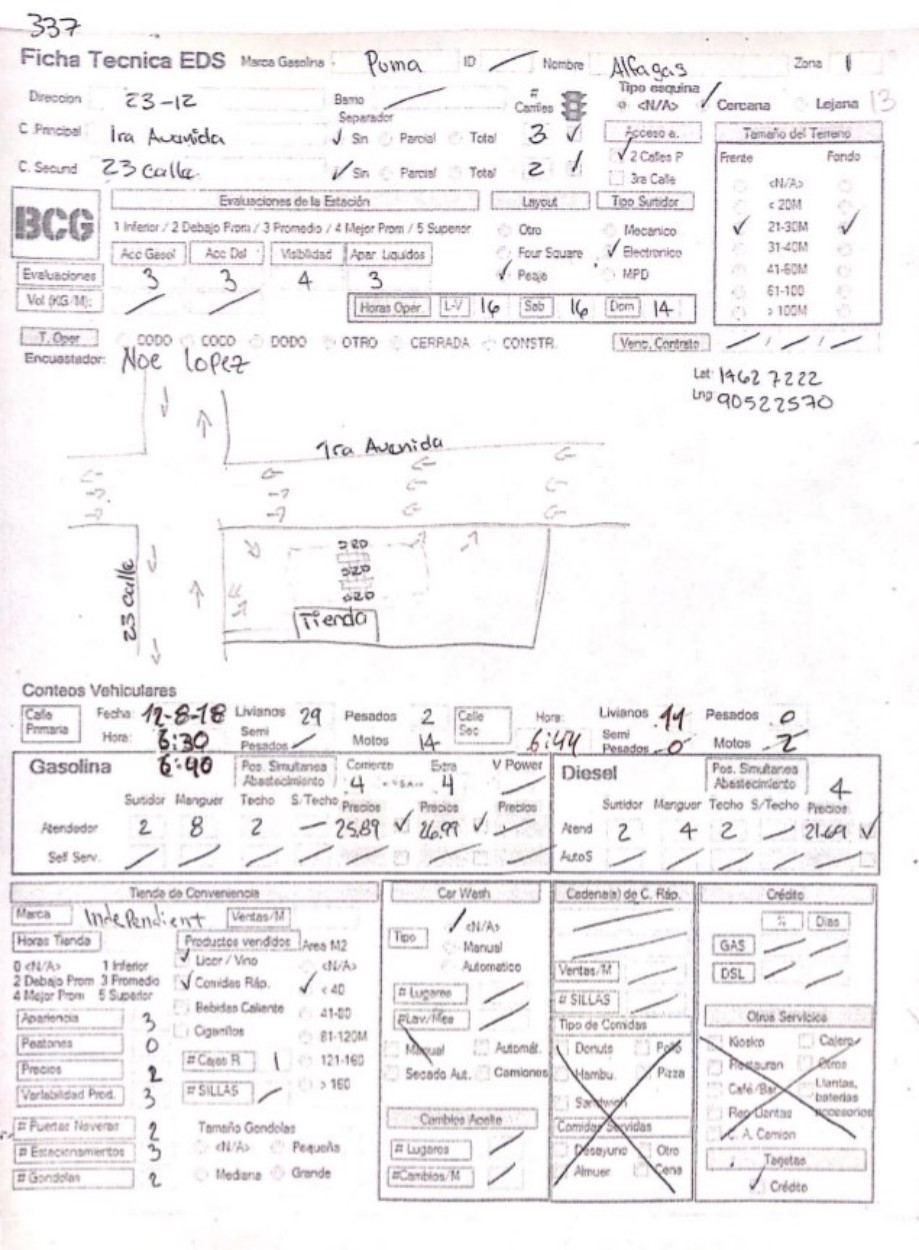 337
Ficha Tecnica EDS Marca Gasolina Puma ID / Nombre Alfagas Zona 1
Direccion 23-12 Barrio / # Carriles Tipo esquina <N/A> ✓ Cercana Lejana 13
Separador
C. Principal 1ra Avenida ✓ Sin Parcial Total 3 ✓ Acceso a. Tamaño del Terreno
C. Secund 23 calle ✓ Sin Parcial Total 2 ✓ ✓ 2 Calles P Frente Fondo
3ra Calle <N/A>
BCG Evaluaciones de la Estación Layout Tipo Surtidor < 20M
1 Inferior / 2 Debajo Prom / 3 Promedio / 4 Mejor Prom / 5 Superior Otro Mecanico ✓ 21-30M ✓
Acc Gasol Acc Dsl Visibilidad Apar Liquidos Four Square ✓ Electronico 31-40M
Evaluaciones 3 3 4 3 ✓ Peaje MPD 41-60M
61-100
Vol (KG/M): / / Horas Oper L-V 16 Sab 16 Dom 14 > 100M
T. Oper CODO COCO DODO OTRO CERRADA CONSTR. Venc. Contrato / / / / /
Encuestador: Noe lopez
Lat: 14627222
Lng: 90522570
1ra Avenida
23 calle
Tienda
Conteos Vehiculares
Calle Primaria Fecha: 12-8-18 Livianos 29 Pesados 2 Calle Sec Hora: 6:44 Livianos 14 Pesados 0
Hora: 6:30 Semi Pesados / Motos 14 Semi Pesados 0 Motos 2
6:40
Gasolina Pos. Simultanea Abastecimiento Corriente 4 Extra 4 V Power / Diesel Pos. Simultanea Abastecimiento 4
Surtidor Manguer Techo S/Techo Precios Precios Precios Surtidor Manguer Techo S/Techo Precios
Atendedor 2 8 2 — 25.89 ✓ 26.99 ✓ / Atend 2 4 2 / 21.69 ✓
Self Serv. / / / / / / / AutoS / / / / /
Tienda de Conveniencia
Marca Independient Ventas/M
Horas Tienda Productos vendidos Area M2
0 <N/A> 1 Inferior ✓ Licor / Vino <N/A>
2 Debajo Prom 3 Promedio ✓ Comidas Ráp. ✓ < 40
4 Mejor Prom 5 Superior Bebidas Caliente 41-80
Apariencia 3 Cigarrillos 81-120M
Peatones 0 # Cajas R 1 121-160
Precios 2 > 160
Variabilidad Prod. 3 # SILLAS /
# Puertas Neveras 2 Tamaño Gondolas
# Estacionamientos 3 <N/A> Pequeña
# Gondolas 2 Mediana Grande
Car Wash
Tipo ✓ <N/A>
Manual
Automatico
# Lugares /
#Lav/Mes /
Manual Automát.
Secado Aut. Camiones
Cambios Aceite
# Lugares /
#Cambios/M /
Cadena(s) de C. Ráp.
Ventas/M /
# SILLAS /
Tipo de Comidas
Donuts Pollo
Hambu. Pizza
Sandwich
Comidas Servidas
Desayuno Otro
Almuer Cena
Crédito
% Dias
GAS / /
DSL / /
Otros Servicios
Kiosko Cajero
Restauran Otros
Café/Bar Llantas, baterias accesorios
Rep Llantas
C. A. Camion
Tarjetas
✓ Crédito